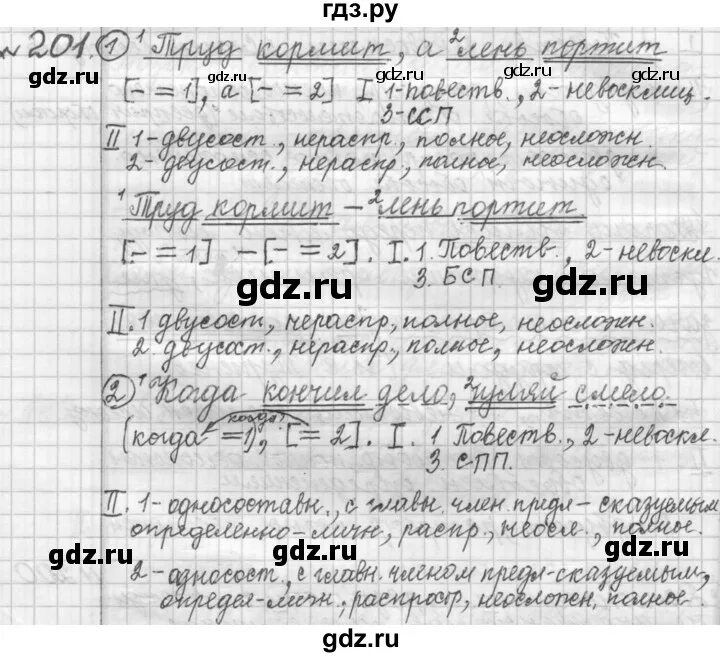 гдз.ру
№ 201. ① ¹Труд кормит, а ²лень портит
[– = 1], а [– = 2] I 1-повеств., 2-невосклиц.
3-ССП
gdz.ru gdz.ru gdz.ru
II 1-двусост., нераспр., полное, неосложн.
2-двусост., нераспр., полное, неосложн.
¹Труд кормит – ²лень портит.
[– = 1] – [– = 2]. I. 1. Повеств., 2-невоскл.
3. БСП.
gdz.ru gdz.ru
II. 1 двусост, нераспр, полное, неосложн.
2 двусост., нераспр., полное, неосложн.
② ¹Когда кончил дело, ²гуляй смело.
когда?
(когда = 1), [= 2]. I. 1 Повеств., 2-невоскл.
3. СПП.
gdz.ru gdz.ru gdz.ru
II. 1-односоставн., с главн. член. предл-сказуемым
определенно-личн, распр., неосл., полное.
2-односост., с главн. членом предл-сказуемым,
определ-личн., распростр, неосложн, полное.
gdz.ru gdz.ru gdz.ru